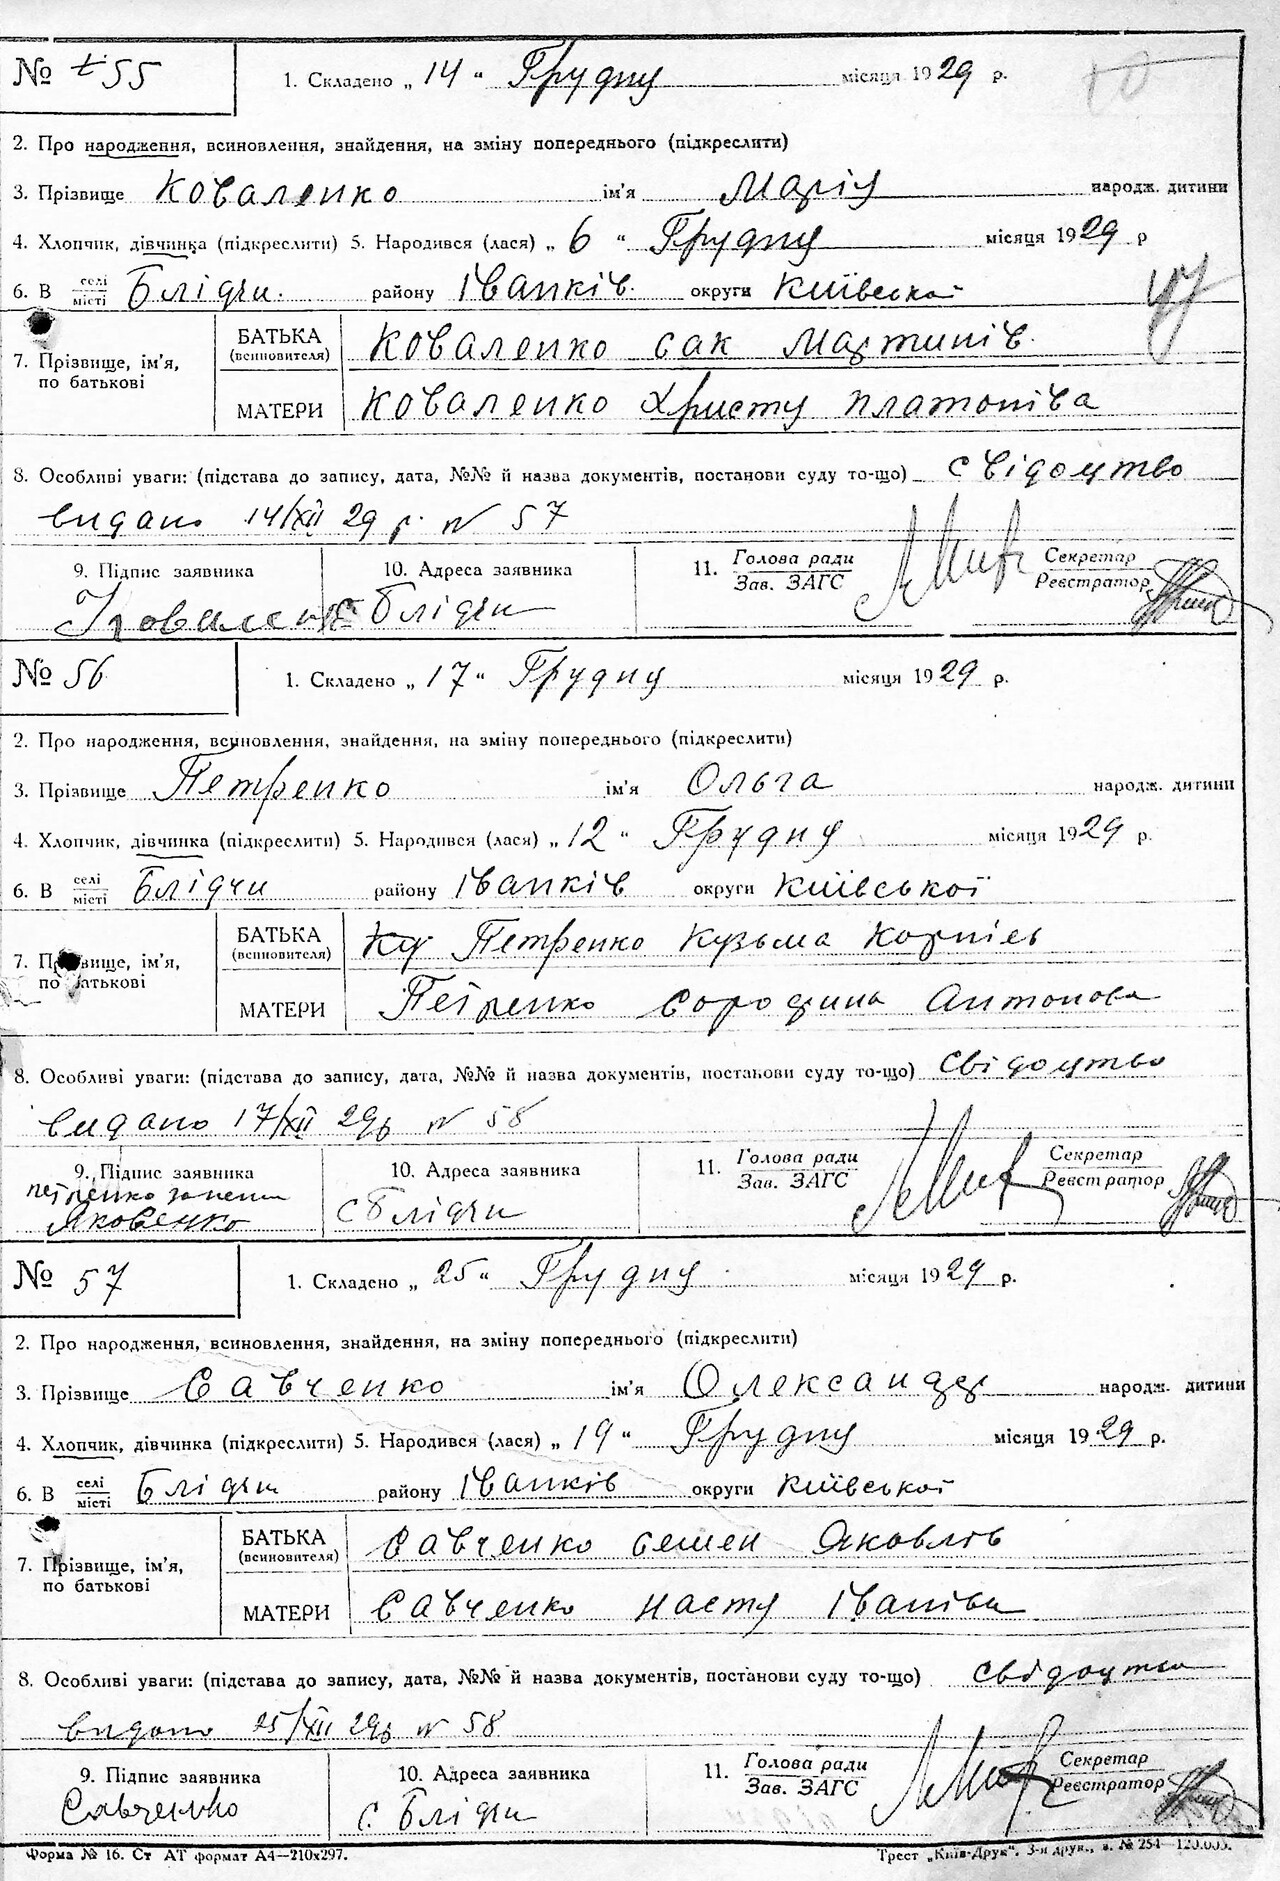 № 55 1. Складено „14“ Грудну місяця 1929 р.
2. Про народження, всиновлення, знайдення, на зміну попереднього (підкреслити)
3. Прізвище Коваленко ім'я Марія народж. дитини
4. Хлопчик, дівчинка (підкреслити) 5. Народився (лася) „6“ Грудну місяця 1929 р
6. В селі/місті Блідчи. району Іванків. округи Київської
БАТЬКА (всиновителя) Коваленко сак Мартинів.
7. Прізвище, ім'я, по батькові
МАТЕРИ Коваленко Христу Платоніва
8. Особливі уваги: (підстава до запису, дата, №№ й назва документів, постанови суду то-що) свідоцтво
видано 14/XII 29 р. N 57
9. Підпис заявника 10. Адреса заявника 11. Голова ради/Зав. ЗАГС Секретар/Реєстратор
с Блідчи
№ 56 1. Складено „17“ Грудну місяця 1929 р.
2. Про народження, всиновлення, знайдення, на зміну попереднього (підкреслити)
3. Прізвище Петренко ім'я Ольга народж. дитини
4. Хлопчик, дівчинка (підкреслити) 5. Народився (лася) „12“ Грудну місяця 1929 р.
6. В селі/місті Блідчи району Іванків округи Київської
БАТЬКА (всиновителя) Ку Петренко Кузьма Корнієв
7. Прізвище, ім'я, по батькові
МАТЕРИ Петренко Антонова
8. Особливі уваги: (підстава до запису, дата, №№ й назва документів, постанови суду то-що) Свідоцтво
видано 17/XII 29р N 58
9. Підпис заявника 10. Адреса заявника 11. Голова ради/Зав. ЗАГС Секретар/Реєстратор
Петренко
Яковенко с Блідчи
№ 57 1. Складено „25“ Грудну місяця 1929 р.
2. Про народження, всиновлення, знайдення, на зміну попереднього (підкреслити)
3. Прізвище Савченко ім'я Олександр народж. дитини
4. Хлопчик, дівчинка (підкреслити) 5. Народився (лася) „19“ Грудну місяця 1929 р.
6. В селі/місті Блідчи району Іванків округи Київської
БАТЬКА (всиновителя) Савченко семен Яковлів
7. Прізвище, ім'я, по батькові
МАТЕРИ Савченко Насту Іванівна
8. Особливі уваги: (підстава до запису, дата, №№ й назва документів, постанови суду то-що) свідоцтво
видано 25/XII 29р N 58
9. Підпис заявника 10. Адреса заявника 11. Голова ради/Зав. ЗАГС Секретар/Реєстратор
Савченко с. Блідчи
Форма № 16. Ст АТ формат А4—210х297. Трест „Київ-Друк“. 3-я друк., з. № 254—120.000.